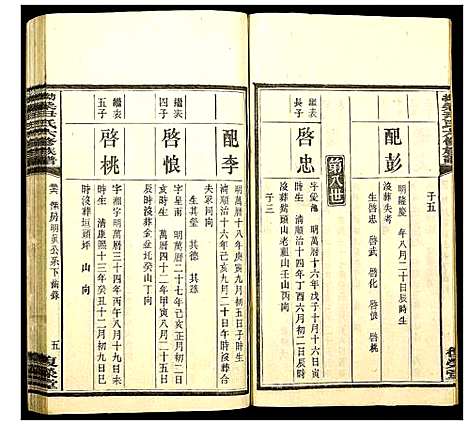 子五
配彭
明隆慶 年八月二十日辰時生
沒葬失考
生啓忠 啓武 啓化 啓恨 啓桃
第八世
繼表長子
啓忠
明萬曆十六年戊子十月十六日寅
清順治十四年丁酉六月初二日辰時
沒葬鴛頭山老祖山壬山丙向
子三
配李
明萬曆十八年庚寅九月初五日子時生
清順治十六年己亥九月二十日午時沒葬合
夫冢同向
生其璽 其德 其
繼表四子
啓恨
字星南 明萬曆二十七年己亥正月初二日
辰時生 萬曆四十二年甲寅八月二十五日
亥時沒葬金盆圫癸山丁向
繼表五子
啓桃
字湘宇 明萬曆三十四年丙午八月十九日未
時生 清康熙十三年癸丑十二月初九日巳
時沒葬垣頭坪 山 向
五